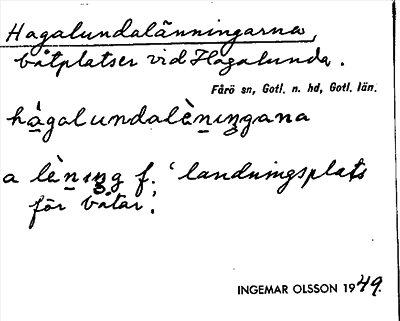 Hagalundalänningarna,
båtplatser vid Hagalunda.
Fårö sn, Gotl. n. hd, Gotl. län.
hågalundalèningana
a lèning f. ‘landningsplats
för båtar’.
INGEMAR OLSSON 1949.